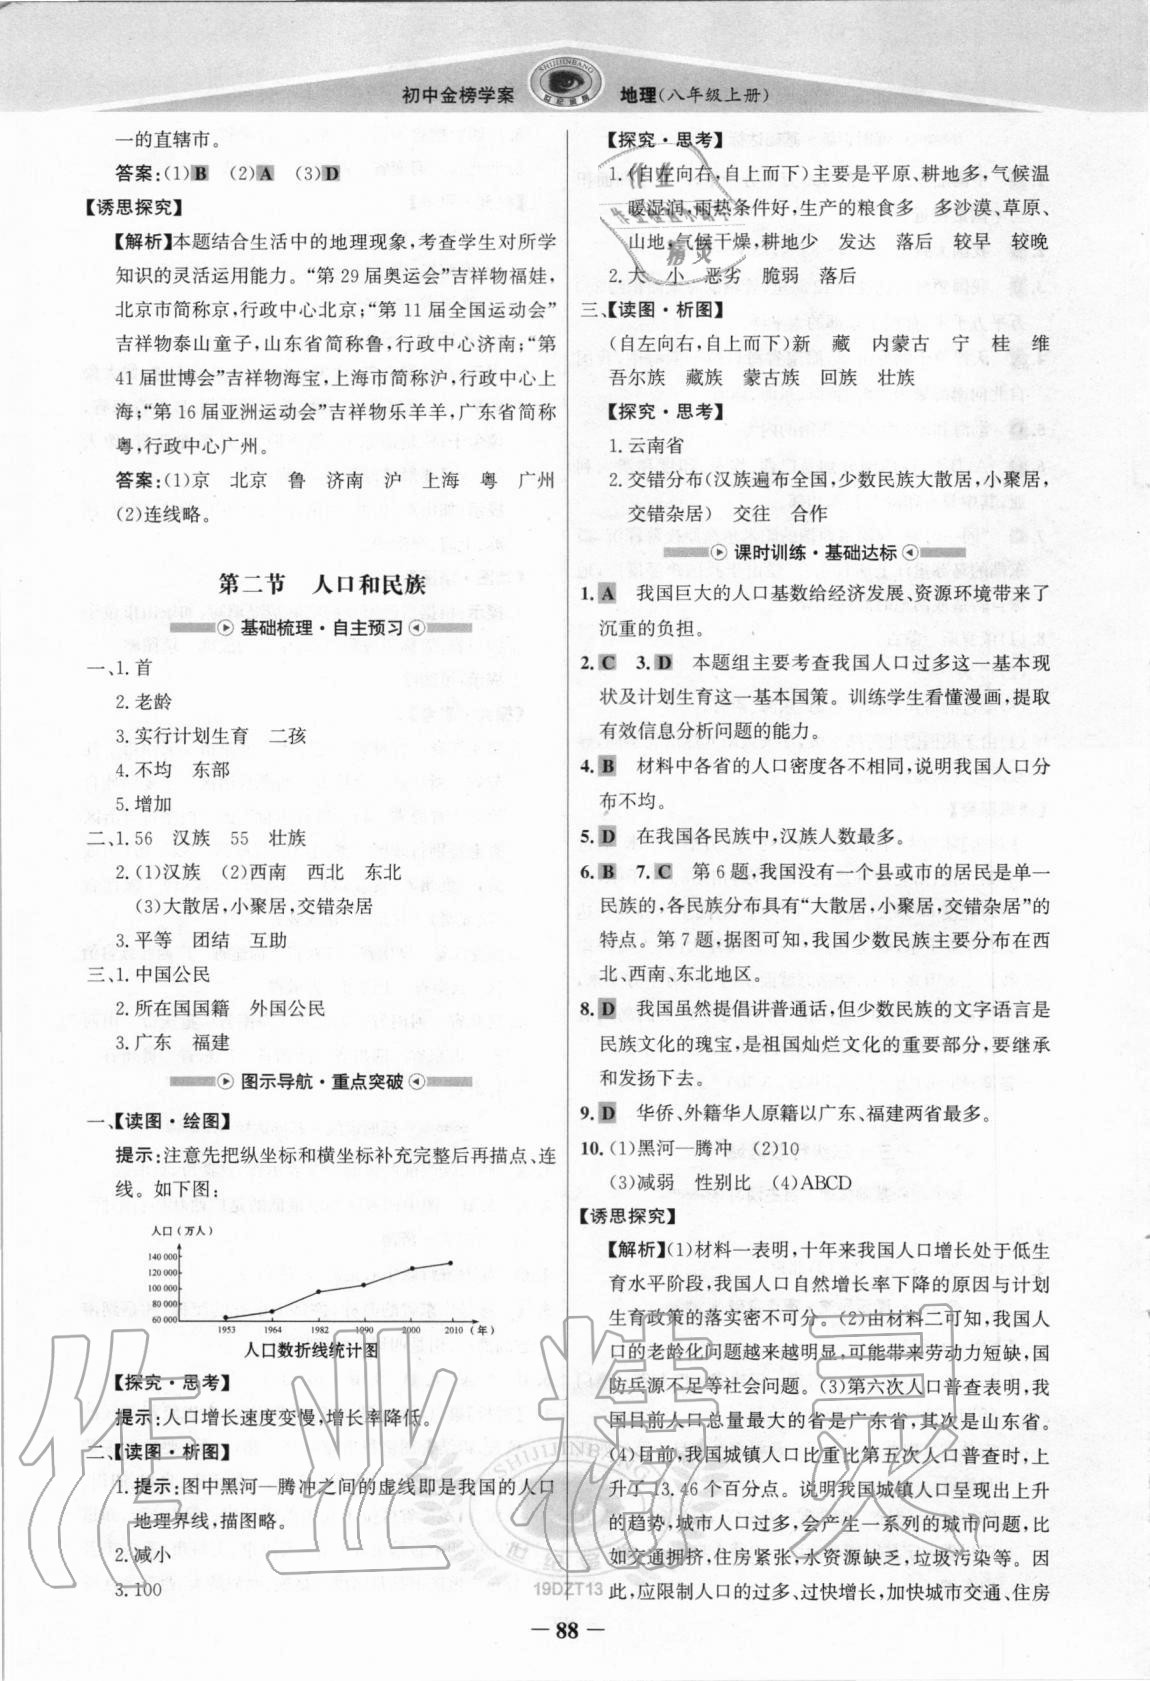 SHIJIINBANG
世纪金榜
初中金榜学案
地理(八年级上册)
一的直辖市。
答案:(1)B (2)A (3)D
【诱思探究】
【解析】本题结合生活中的地理现象,考查学生对所学
知识的灵活运用能力。“第 29 届奥运会”吉祥物福娃,
北京市简称京,行政中心北京;“第 11 届全国运动会”
吉祥物泰山童子,山东省简称鲁,行政中心济南;“第
41 届世博会”吉祥物海宝,上海市简称沪,行政中心上
海;“第 16 届亚洲运动会”吉祥物乐羊羊,广东省简称
粤,行政中心广州。
答案:(1)京 北京 鲁 济南 沪 上海 粤 广州
(2)连线略。
第二节 人口和民族
基础梳理·自主预习
一、1.首
2.老龄
3.实行计划生育 二孩
4.不均 东部
5.增加
二、1.56 汉族 55 壮族
2.(1)汉族 (2)西南 西北 东北
(3)大散居,小聚居,交错杂居
3.平等 团结 互助
三、1.中国公民
2.所在国国籍 外国公民
3.广东 福建
图示导航·重点突破
一、【读图·绘图】
提示:注意先把纵坐标和横坐标补充完整后再描点、连
线。如下图:
人口(万人)
140 000
120 000
100 000
80 000
60 000
1953 1964 1982 1990 2000 2010 (年)
人口数折线统计图
【探究·思考】
提示:人口增长速度变慢,增长率降低。
二、【读图·析图】
1.提示:图中黑河—腾冲之间的虚线即是我国的人口
地理界线,描图略。
2.减小
3.100
【探究·思考】
1.(自左向右,自上而下)主要是平原、耕地多,气候温
暖湿润,雨热条件好,生产的粮食多 多沙漠、草原、
山地,气候干燥,耕地少 发达 落后 较早 较晚
2.大 小 恶劣 脆弱 落后
三、【读图·析图】
(自左向右,自上而下)新 藏 内蒙古 宁 桂 维
吾尔族 藏族 蒙古族 回族 壮族
【探究·思考】
1.云南省
2.交错分布(汉族遍布全国,少数民族大散居,小聚居,
交错杂居) 交往 合作
课时训练·基础达标
1.A 我国巨大的人口基数给经济发展、资源环境带来了
沉重的负担。
2.C 3.D 本题组主要考查我国人口过多这一基本现
状及计划生育这一基本国策。训练学生看懂漫画,提取
有效信息分析问题的能力。
4.B 材料中各省的人口密度各不相同,说明我国人口分
布不均。
5.D 在我国各民族中,汉族人数最多。
6.B 7.C 第 6 题,我国没有一个县或市的居民是单一
民族的,各民族分布具有“大散居,小聚居,交错杂居”的
特点。第 7 题,据图可知,我国少数民族主要分布在西
北、西南、东北地区。
8.D 我国虽然提倡讲普通话,但少数民族的文字语言是
民族文化的瑰宝,是祖国灿烂文化的重要部分,要继承
和发扬下去。
9.D 华侨、外籍华人原籍以广东、福建两省最多。
10.(1)黑河—腾冲 (2)10
(3)减弱 性别比 (4)ABCD
【诱思探究】
【解析】(1)材料一表明,十年来我国人口增长处于低生
育水平阶段,我国人口自然增长率下降的原因与计划
生育政策的落实密不可分。(2)由材料二可知,我国人
口的老龄化问题越来越明显,可能带来劳动力短缺,国
防兵源不足等社会问题。(3)第六次人口普查表明,我
国目前人口总量最大的省是广东省,其次是山东省。
(4)目前,我国城镇人口比重比第五次人口普查时,上
升了 13.46 个百分点。说明我国城镇人口呈现出上升
的趋势,城市人口过多,会产生一系列的城市问题,比
如交通拥挤,住房紧张,水资源缺乏,垃圾污染等。因
此,应限制人口的过多、过快增长,加快城市交通、住房
作业精灵
作业精灵
SHIJIINBANG
世纪金榜
19DZT13
— 88 —